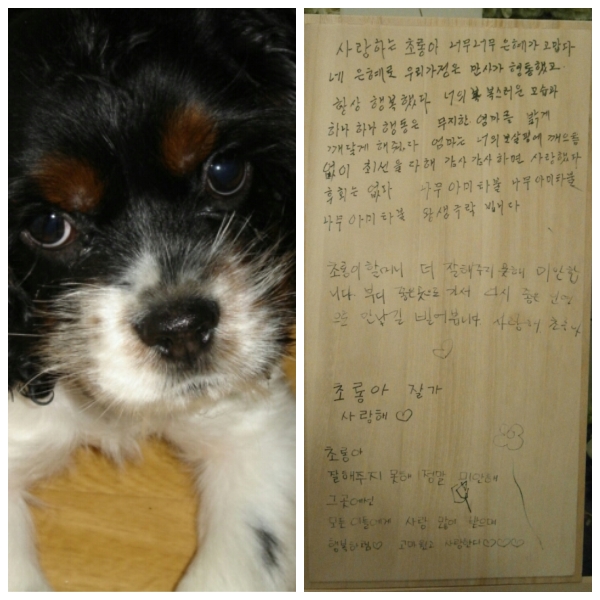 사랑하는 초롱아 너무너무 은혜가 고맙다
네 은혜로 우리가정은 만시가 행통했고.
항상 행복했다 너의 복스러운 모습과
하나 하나 행동은 무지한 엄마를 밝게
깨닫게 해줬다 엄마는 너의 보살핌에
없이 최선을 다해 감사 감사하면 사랑했다
후회는 없다 나무아미타불 나무아미타불
나무아미타불 왕생극락 빕니다
초롱이 할머니 더 잘해주지 못해 미안합
니다. 부디 좋은곳으로 가서 다시 좋은 인연
으로 만남길 빌어봅니다. 사랑해 초롱아
초롱아 잘가
사랑해 ♡
초롱아
잘해주지 못해 정말 미안해
그곳에선
사랑 많이
행복해야해♡ 고마웠고 사랑한다♡♡♡